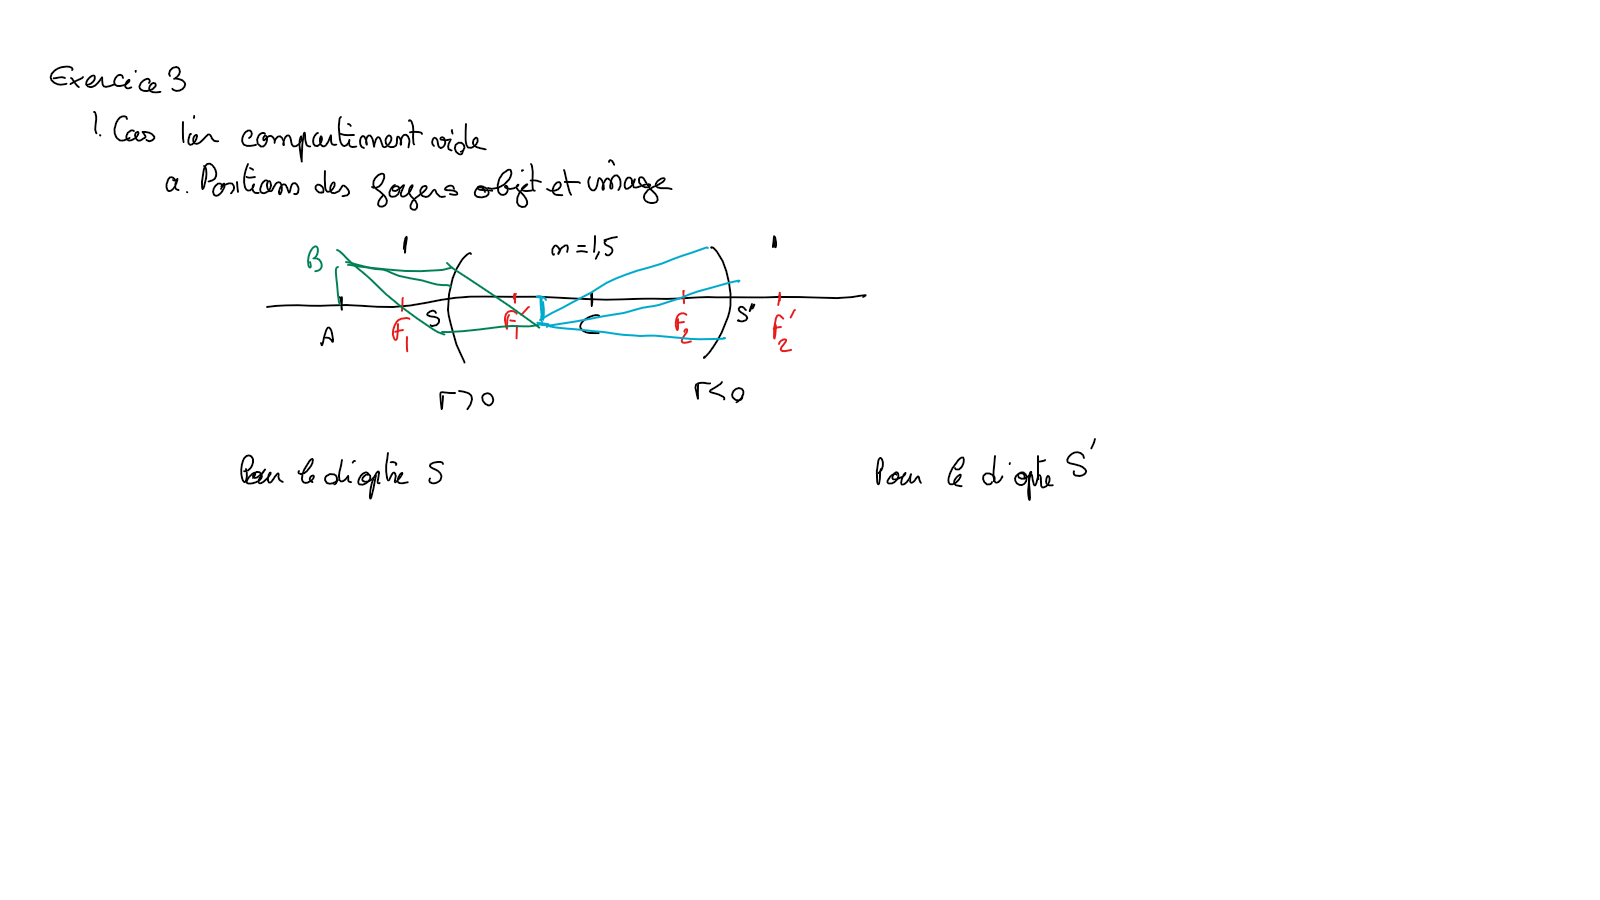 Exercice 3
1. Cas 1ier compartiment vide
a. Positions des foyers objet et image
B 1 n = 1,5 1
A F1 S F1' C F2 S' F2'
r > 0 r < 0
Pour le dioptre S Pour le dioptre S'